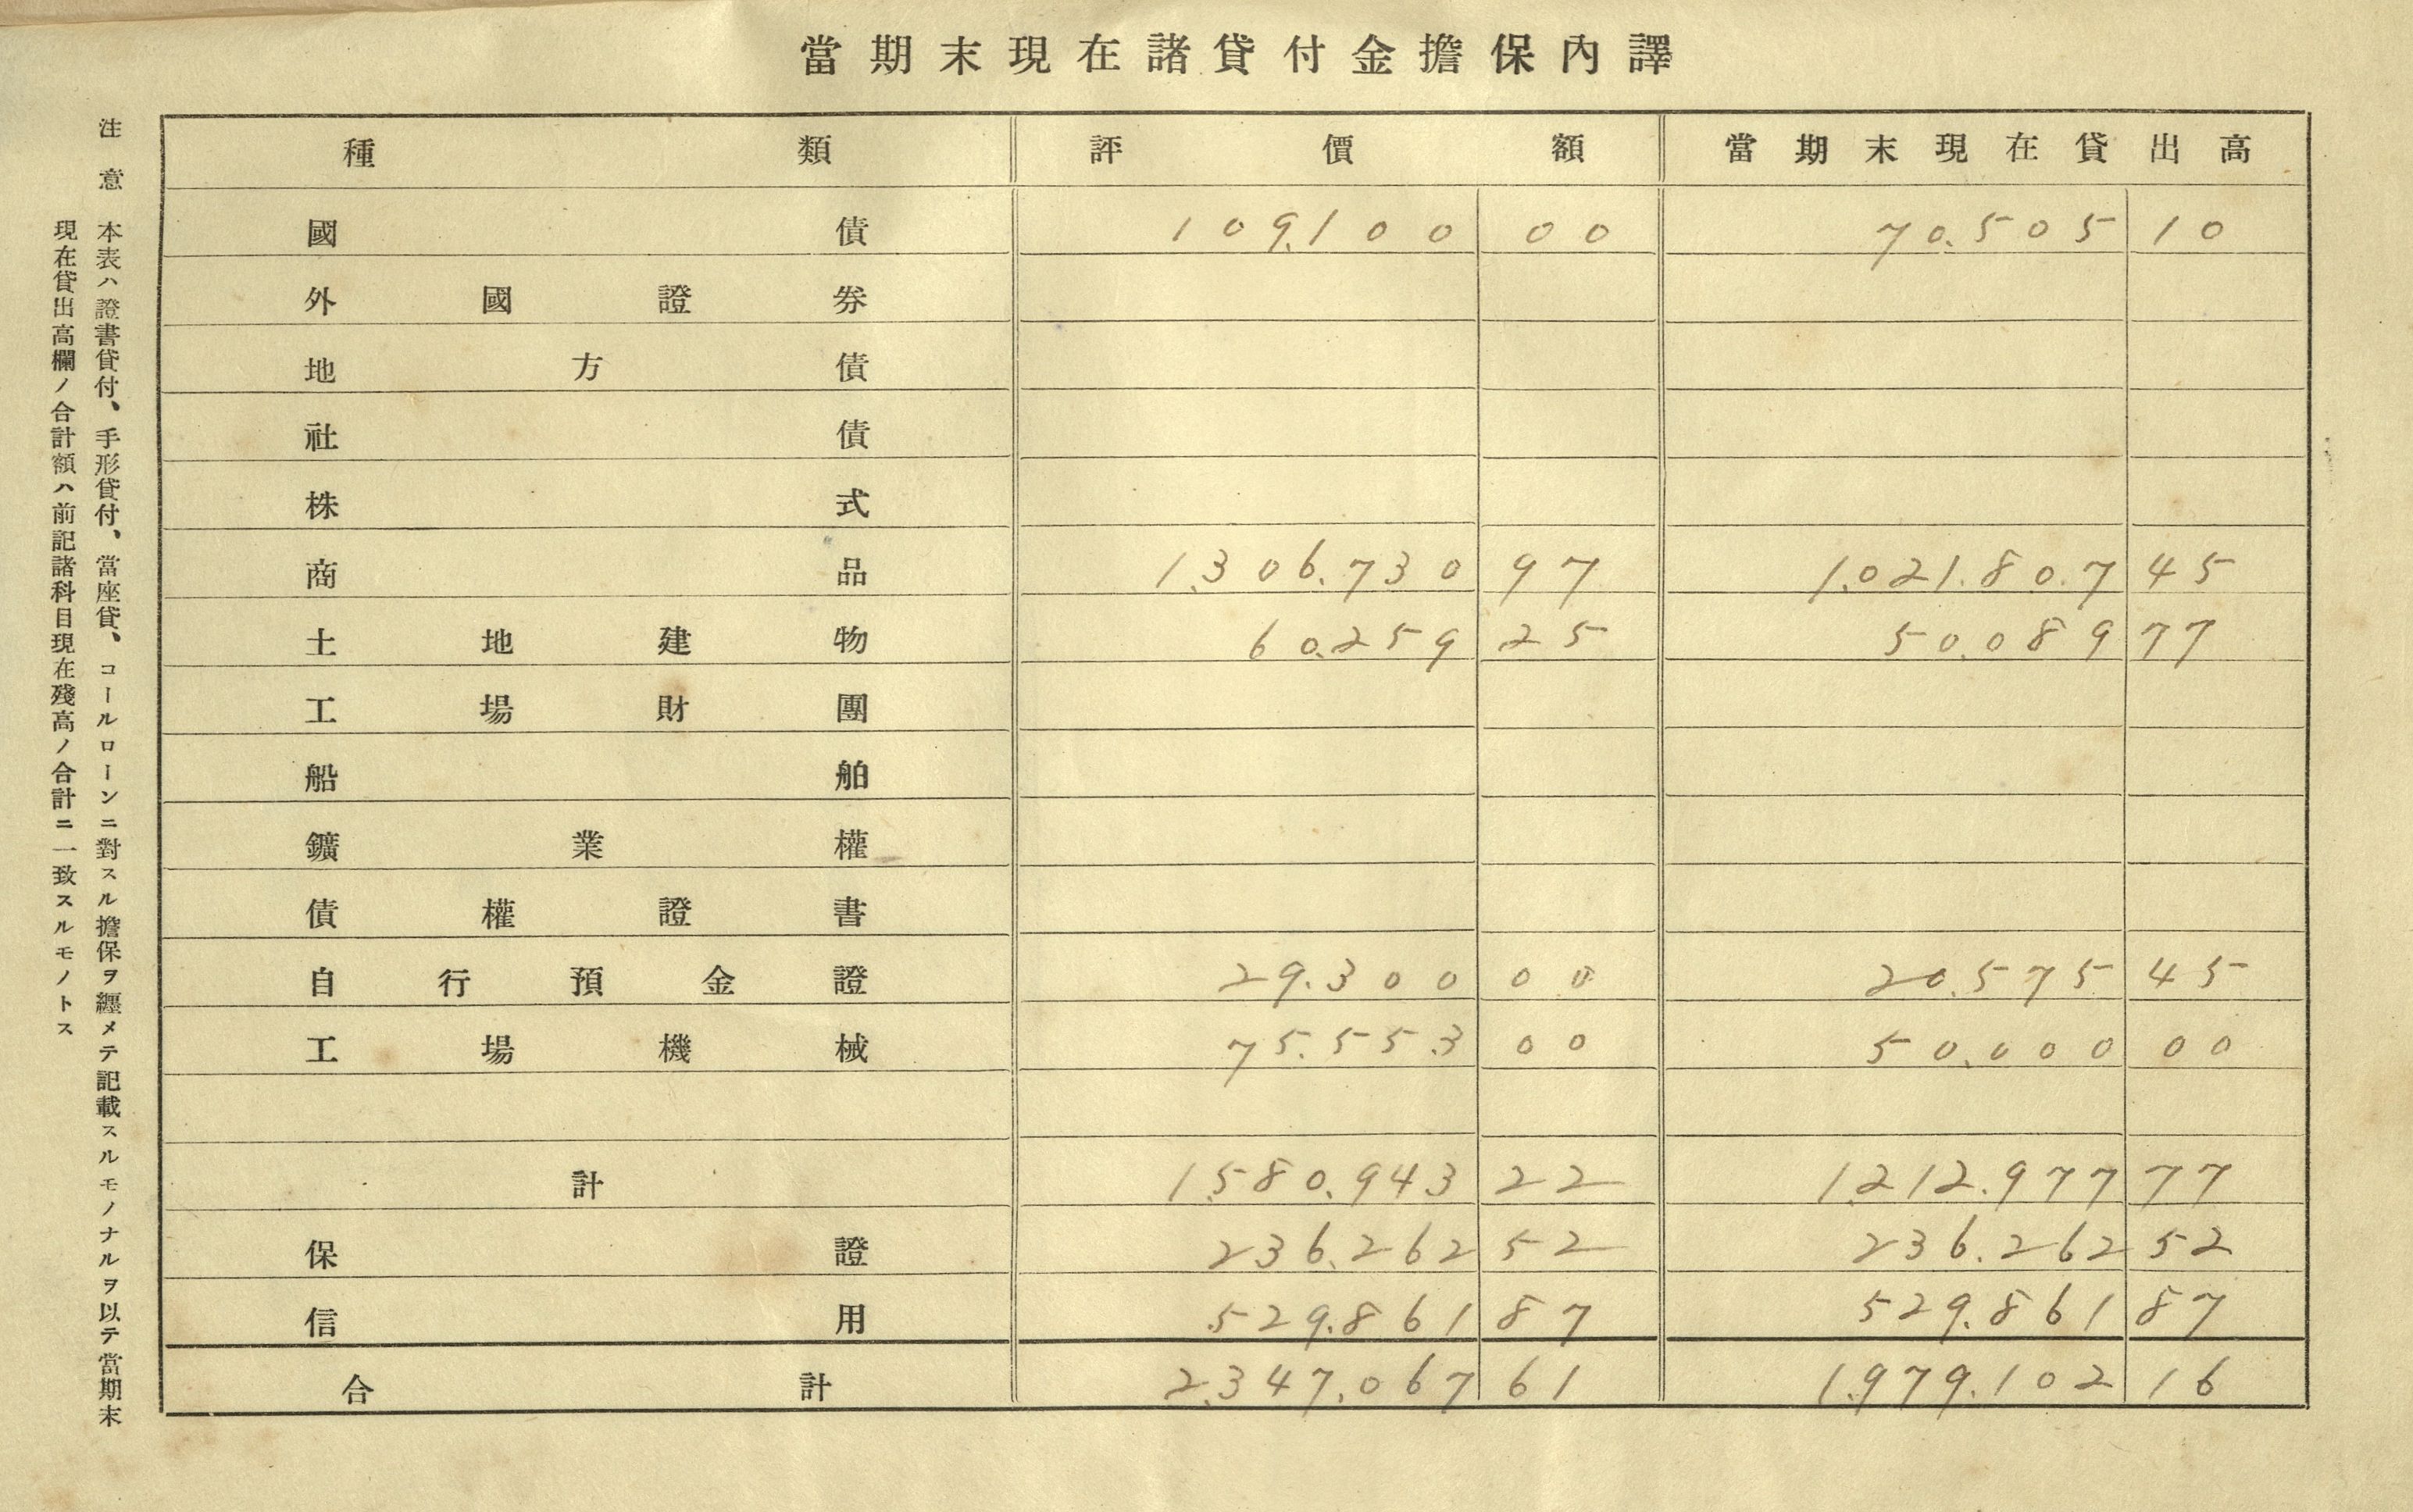 當期末現在諸貸付金擔保內譯
種類 評價額 當期末現在貸出高
國債 109.100 00 70.505 10
外國證券
地方債
社債
株式
商品 1.306.730 97 1.021.807 45
土地建物 60.259 25 50.089 77
工場財團
船舶
鑛業權
債權證書
自行預金證 29.300 00 20.575 45
工場機械 75.553 00 50.000 00
計 1.580.943 22 1.212.977 77
保證 236.262 52 236.262 52
信用 529.861 87 529.861 87
合計 2.347.067 61 1.979.102 16
注意 本表ハ證書貸付、手形貸付、當座貸、コールローンニ對スル擔保ヲ纒メテ記載スルモノナルヲ以テ當期末
現在貸出高欄ノ合計額ハ前記諸科目現在殘高ノ合計ニ一致スルモノトス